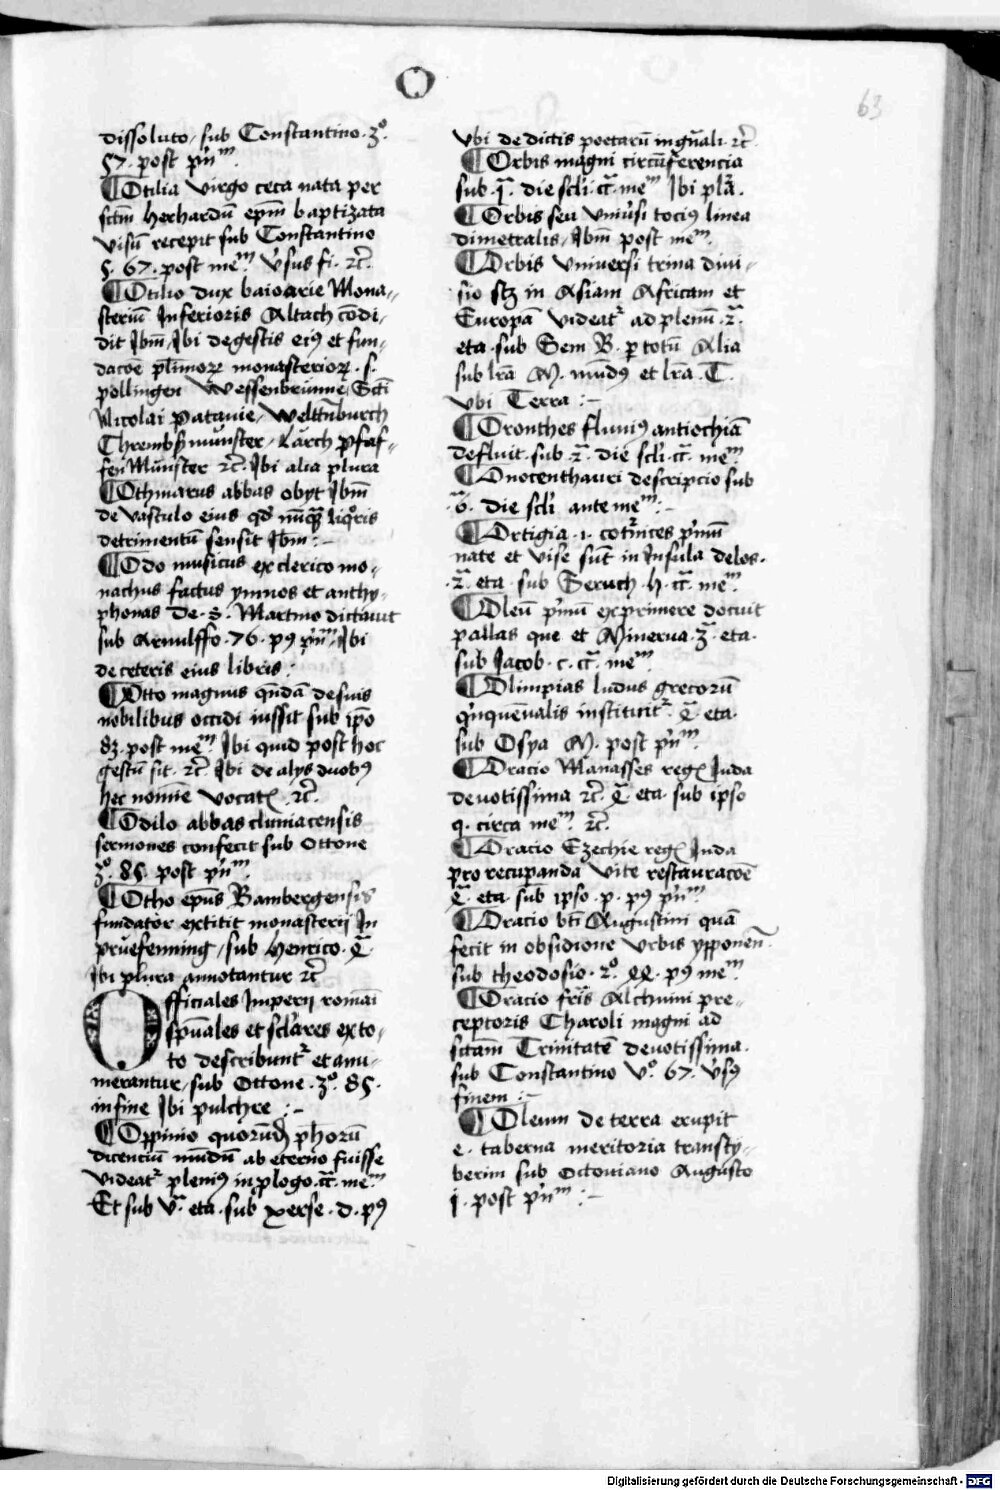 O
63
dissoluto, sub Constantino. 3º.
57. post pⁿm.
¶ Otilia virgo ceca nata per
sctm herhardū ep̄m baptizata
visū recepit sub Constantino
5. 67. post meᵐ. v̓sus fi. ⁊c̄.
¶ Otilo dux baioarie Mona-
steriū Inferioris Altach cōdi-
dit Ibm̄, Ibi de gestis ei⁹ et fun-
dacōe pl̄imoꝝ monasterioꝝ. s.
pollingen Wessenbrunne, Scti
Nicolai patauie, Welttnburch
Chrembsmunster, Larch pfaf-
fen Munster ⁊c̄. Ibi alia plura
¶ Othmarus abbas obyt Ibm̄
de vasculo eius qd̓ nūqꝫ liqoris
detrimentū sensit Ibm̄ :-
¶ Odo musicus ex clerico mo-
nachus factus ymnos et anthy-
phonas De. S. Martino dictauit
sub Arnulffo. 76. p⁹ pⁿm, Ibi
de ceteris eius libris :
¶ Otto magnus qⁿdā de suis
nobilibus occidi iussit sub ip̄o
83. post meᵐ. Ibi quid post hoc
gestū sit. ⁊c̄. Ibi de alys duob⁹
hec nomine vocatꝭ. ⁊c̄.
¶ Odilo abbas cluniacensis
sermones confecit sub Ottone
3º. 85. post pⁿm.
¶ Otho ep̄us Bambergensis
fundator extitit monasterij In
pruefenning, sub Henrico. 4̄.
Ibi plura annotantur ⁊c̄
Officiales Imperij romāi
sp̄uales et sclares ex to-
to describuntᷣ et anu-
merantur, sub Ottone. 3º. 85.
in fine Ibi pulchre :-
¶ Oppinio quorūdā ph̄orū
dicenciū mūdū ab eterno fuisse
videatᷣ pleni⁹ in plogo. cc̄. meᵐ
Et sub v̄. eta. sub xerse. d. p⁹
vbi de dictis poetarū in gn̄ali. ⁊c̄.
¶ Orbis magni circūferencia
sub. 1̄. die scli. cc̄. meᵐ Ibi pl̄a.
¶ Orbis seu vniu̓si toci⁹ linea
dimetralis, Ibm̄ post meᵐ.
¶ Orbis vniuersi trina diui-
sio scꝫ in Asiam Africam et
Europā videatᷣ ad plenū. 2̄.
eta. sub Sem B. p totū Alia
sub l̄ra M. mūd⁹ et l̄ra. T.
vbi Terra :-
¶ Oronthes fluui⁹ antiochiā
defluit. sub. 2̄. die scli. cc̄. meᵐ.
¶ Onocenthauri descripcio sub
.6̄. die scli ante meᵐ :-
¶ Ortigia. i. cotᷣnices pⁱmū
nate et vise sūt in Insula delos.
.2̄. eta. sub Seruch. h. cc̄. meᵐ.
¶ Oleū pⁱmū exprimere docuit
pallas que et Minerua. 3̄. eta.
sub Jacob. c. cc̄. meᵐ.
¶ Olimpias ludus grecorū
qⁱnquēnalis instituitᷣ. 4̄. eta.
sub Osya M. post pⁿm.
¶ Oracio Manasses regꝭ Juda
deuotissima ⁊c̄. 4̄. eta. sub ipso
q. circa meᵐ. ⁊c̄.
¶ Oracio Ezechie regꝭ Juda
pro recupanda vite restauracōe
4̄. eta. sub ipso. p. p⁹ pⁿm.
¶ Oracio bti Augustini quā
fecit in obsidione vrbis ypponēn.
sub theodosio. 2º. 44. p⁹ meᵐ.
¶ Oracio fr̄is Alchuini pre-
ceptoris Charoli magni ad
sctam Trinitatē deuotissima.
sub Constantino vº. 67. v̓s⁹
finem :-
¶ Oleum de terra erupit
e. taberna meritoria transty-
berim sub Octouiano Augusto
j. post pⁿm :-
Digitalisierung gefördert durch die Deutsche Forschungsgemeinschaft - DFG